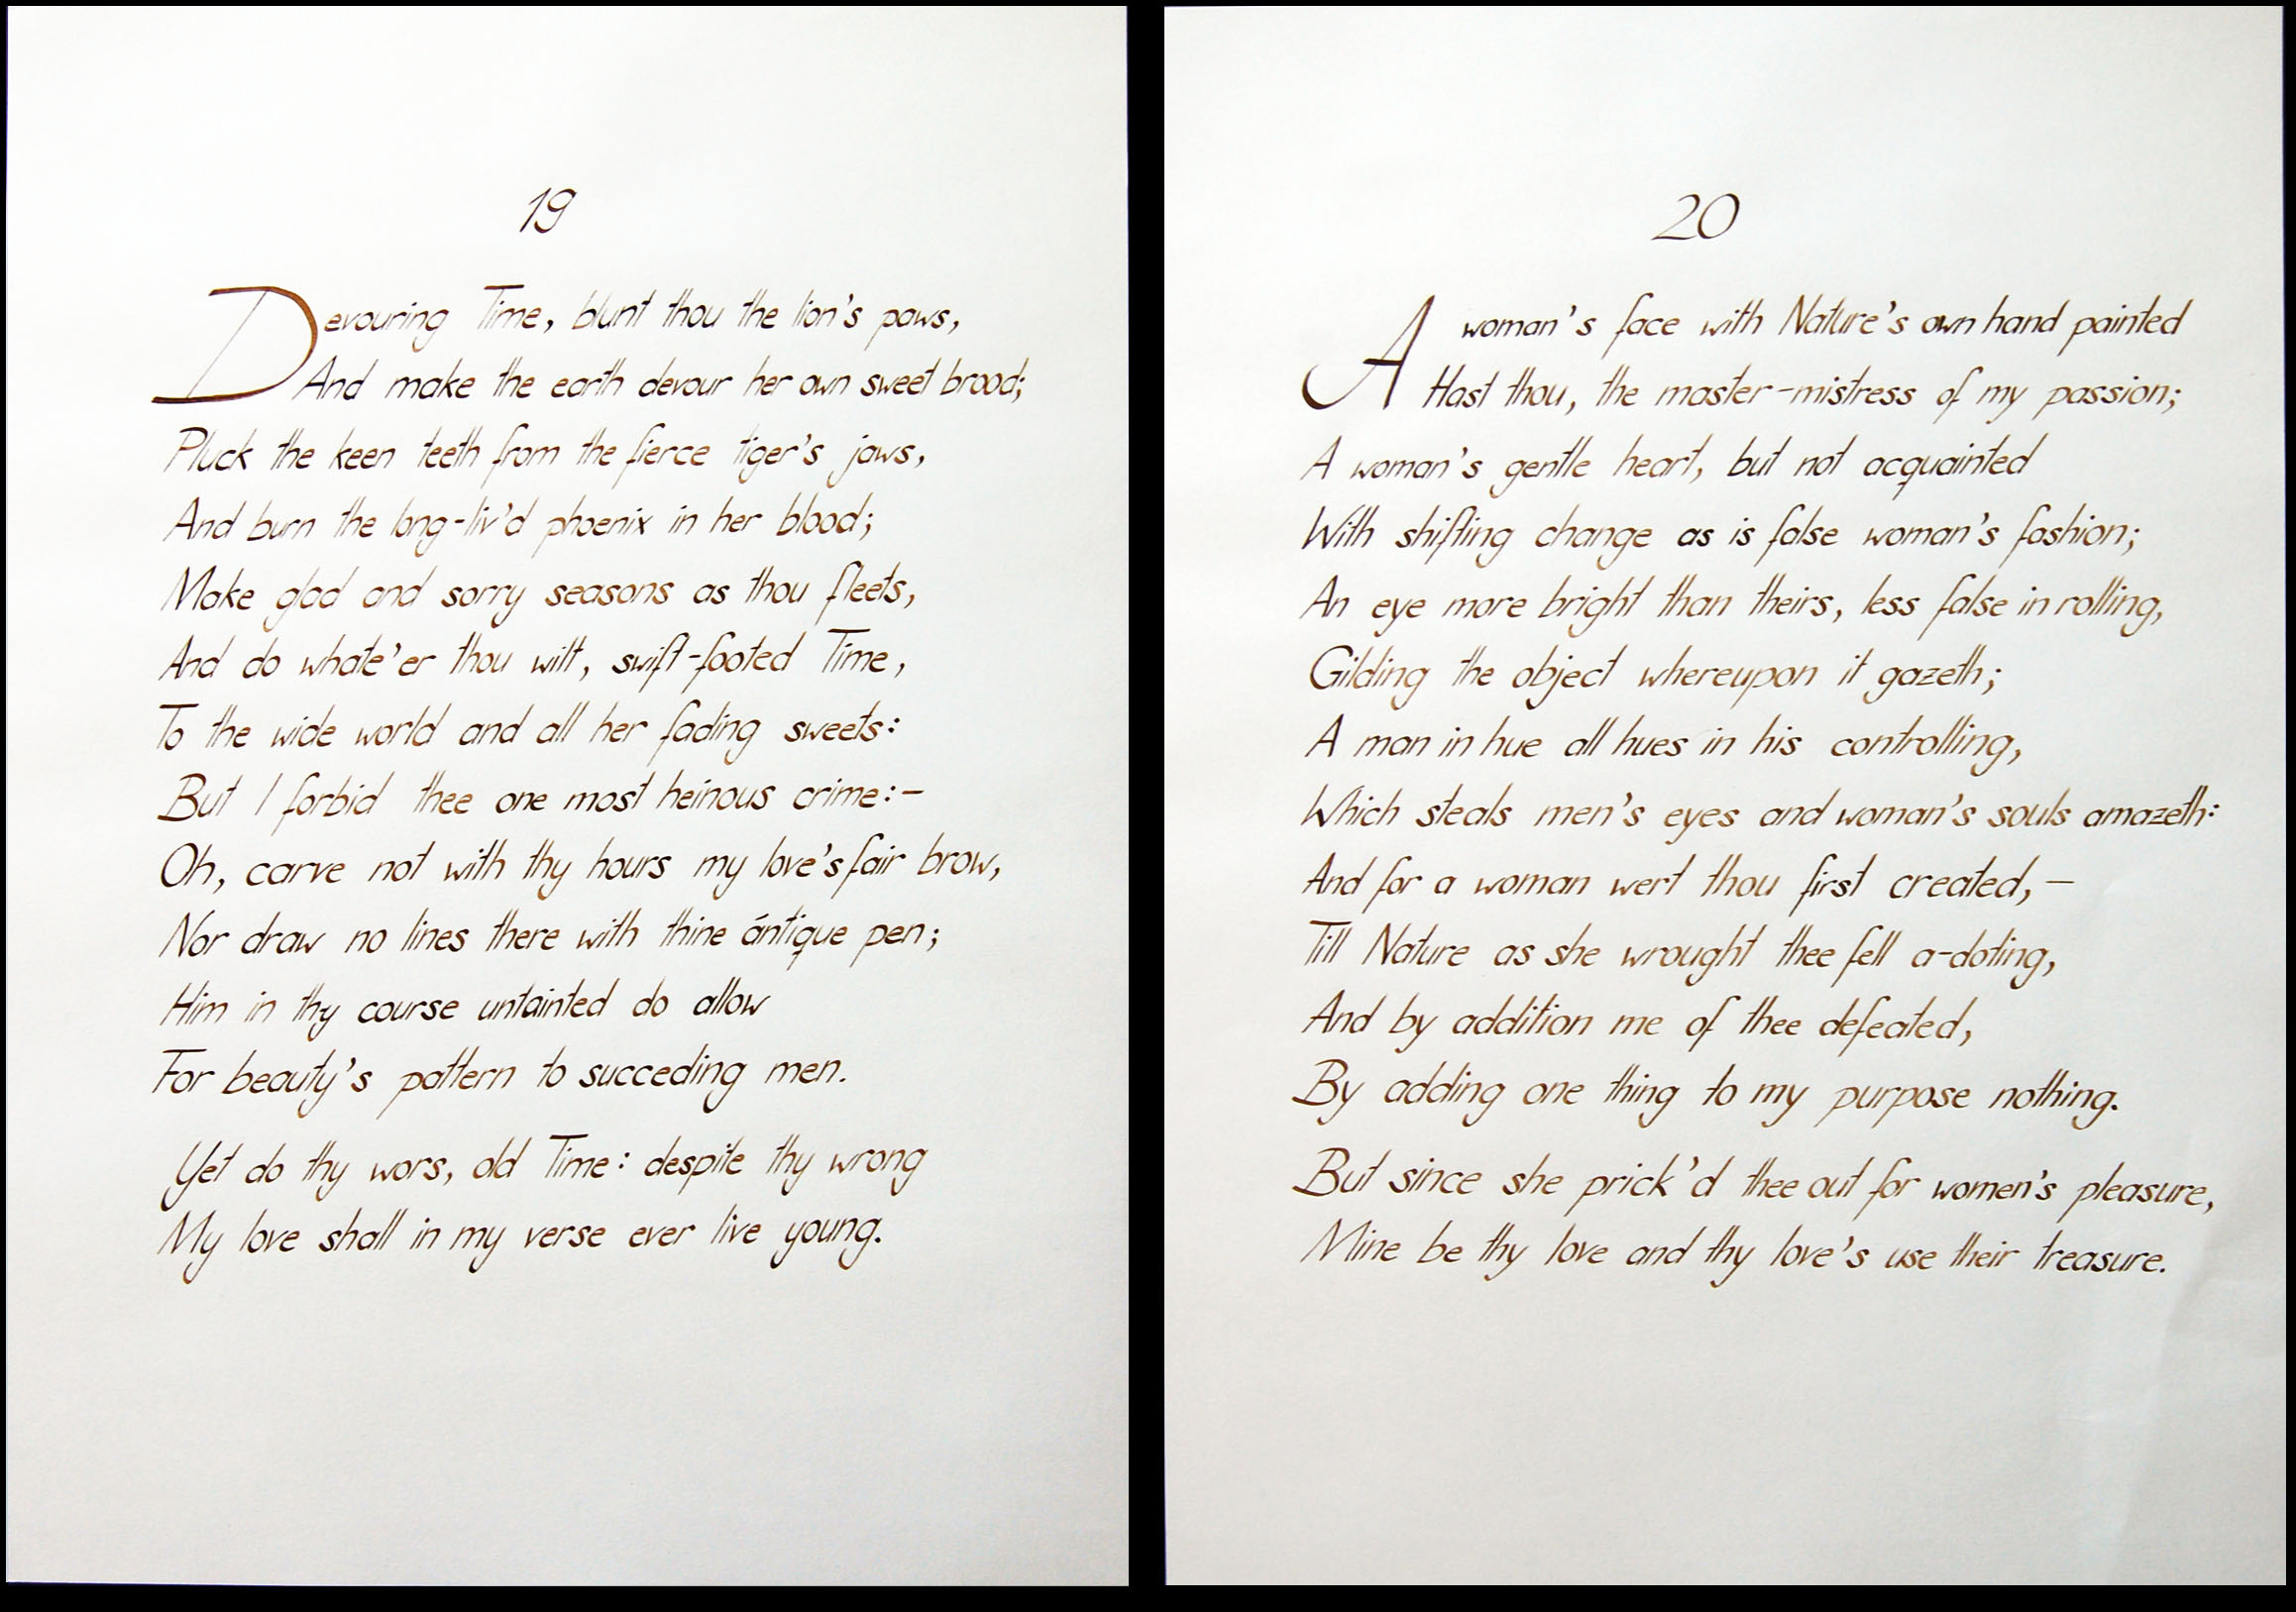 19
Devouring Time, blunt thou the lion's paws,
And make the earth devour her own sweet brood;
Pluck the keen teeth from the fierce tiger's jaws,
And burn the long-liv'd phoenix in her blood;
Make glad and sorry seasons as thou fleets,
And do whate'er thou wilt, swift-footed Time,
To the wide world and all her fading sweets:
But I forbid thee one most heinous crime:-
Oh, carve not with thy hours my love's fair brow,
Nor draw no lines there with thine ántique pen;
Him in thy course untainted do allow
For beauty's pattern to succeding men.
Yet do thy wors, old Time: despite thy wrong
My love shall in my verse ever live young.
20
A woman's face with Nature's own hand painted
Hast thou, the master-mistress of my passion;
A woman's gentle heart, but not acquainted
With shifting change as is false woman's fashion;
An eye more bright than theirs, less false in rolling,
Gilding the object whereupon it gazeth;
A man in hue all hues in his controlling,
Which steals men's eyes and woman's souls amazeth:
And for a woman wert thou first created,-
Till Nature as she wrought thee fell a-doting,
And by addition me of thee defeated,
By adding one thing to my purpose nothing.
But since she prick'd thee out for women's pleasure,
Mine be thy love and thy love's use their treasure.